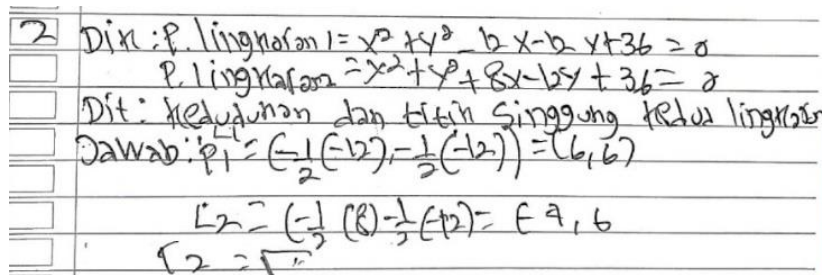 2 Dik : P. lingkaran 1 = x² + y² - 12x - 12y + 36 = 0
P. lingkaran 2 = x² + y² + 8x - 12y + 36 = 0
Dit : Kedudukan dan titik singgung kedua lingkaran
Jawab : P₁ = (-1/2 (-12), -1/2 (-12)) = (6,6)
L2 = (-1/2 (8) -1/2 (-12) = (-4, 6
r2 = √